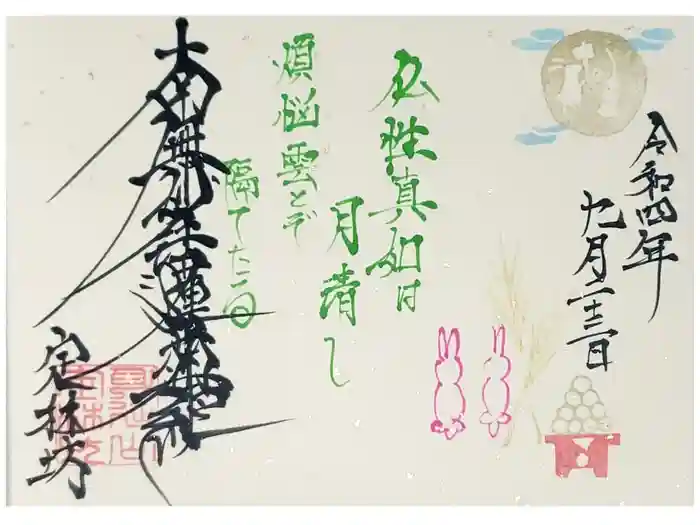 令和四年
九月二十三日
仏性真如は
月清し
煩悩雲とぞ
隔てたる
南無妙法蓮華経
定林坊